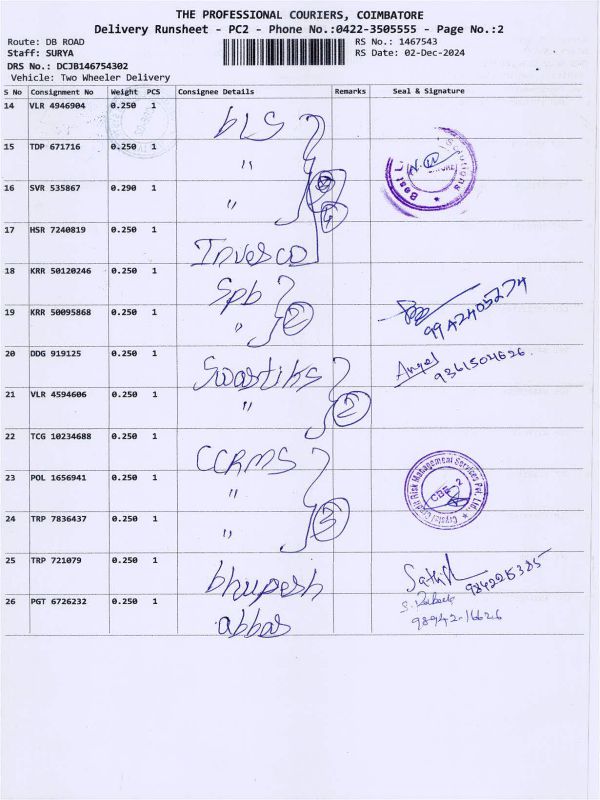 THE PROFESSIONAL COURIERS, COIMBATORE
Delivery Runsheet - PC2 - Phone No.:0422-3505555 - Page No.:2
Route: DB ROAD
RS No.: 1467543
Staff: SURYA
RS Date: 02-Dec-2024
DRS No.: DCJB146754302
Vehicle: Two Wheeler Delivery
S No Consignment No Weight PCS Consignee Details Remarks Seal & Signature
14 VLR 4946904 0.250 1 bLS
15 TDP 671716 0.250 1 "
16 SVR 535867 0.290 1 "
4
17 HSR 7240819 0.250 1 Invesco
18 KRR 50120246 0.250 1 Spb
19 KRR 50095868 0.250 1 " 2
20 DDG 919125 0.250 1 Swastiks
21 VLR 4594606 0.250 1 " 2
22 TCG 10234688 0.250 1 CCRMS
Crystal Credit Risk Management Services Pvt. Ltd.,
CBE-2
23 POL 1656941 0.250 1 "
24 TRP 7836437 0.250 1 " 3
25 TRP 721079 0.250 1 bhupesh
26 PGT 6726232 0.250 1 abbas
98942-16626